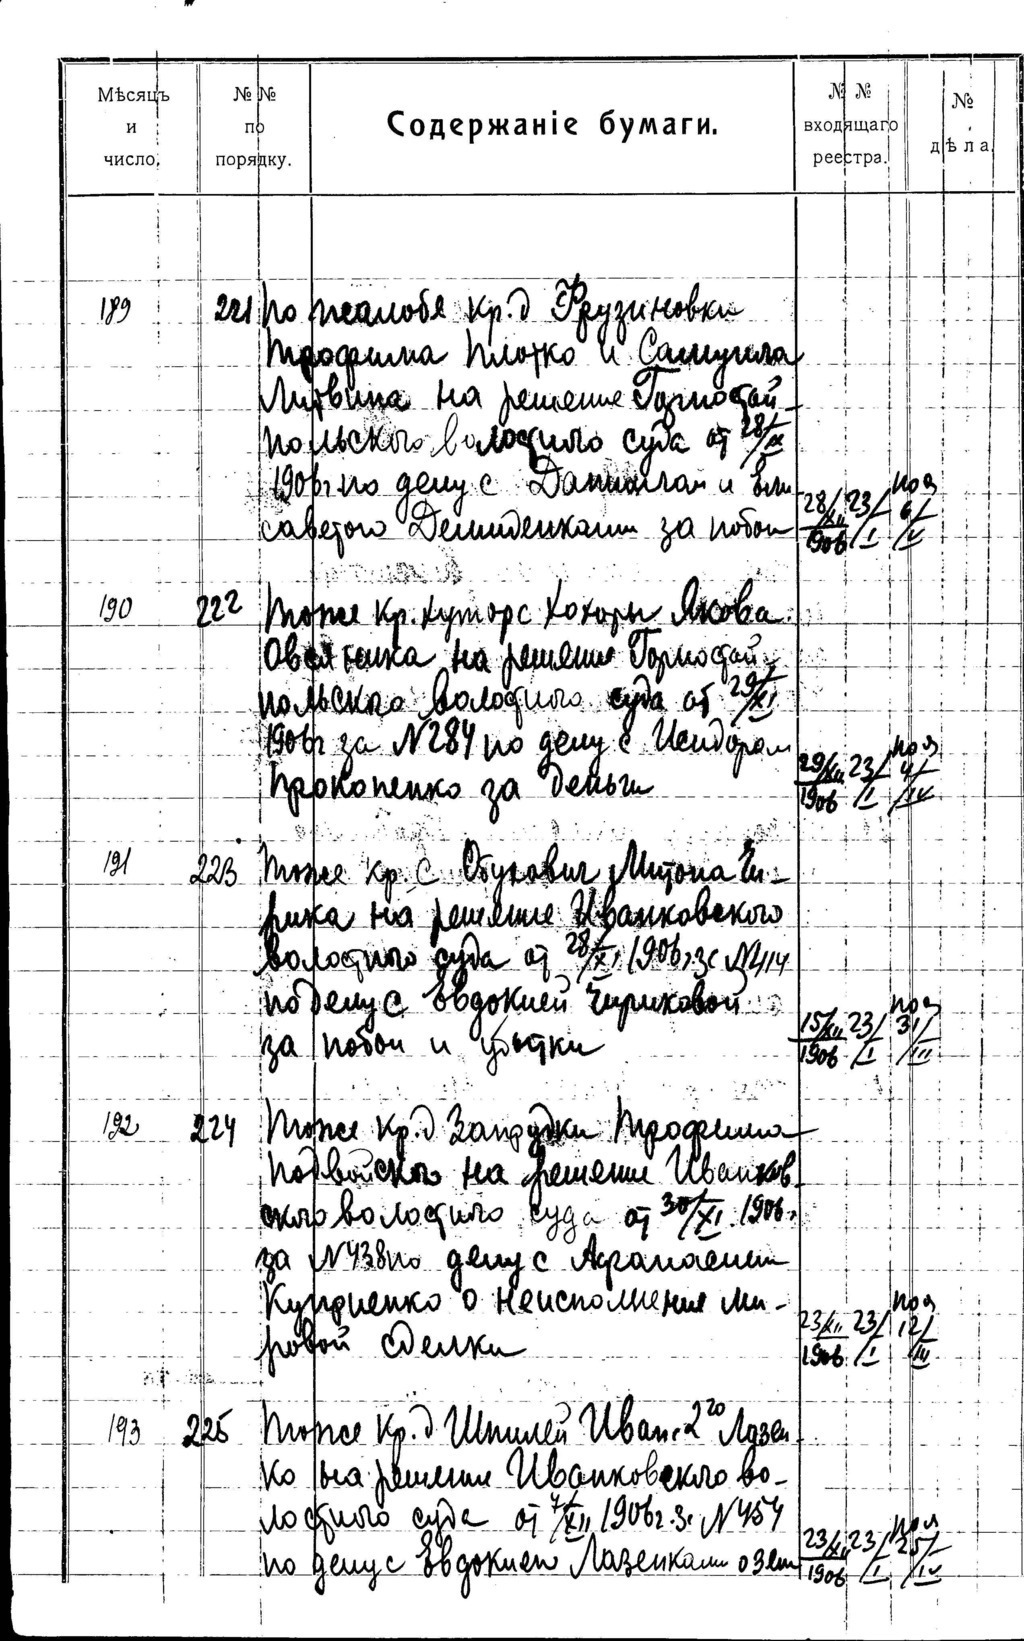 Мѣсяцъ и число.
№ № по порядку.
Содержаніе бумаги.
№ № входящаго реестра.
№ дѣла.
189 221 По жалобѣ кр. д Фрузиновки
Трофима Плотко и Самуила
Литвина на решение Горностай-
польского волостного суда от 28/XI
1906 г по делу с Даниилом и Ели
саветою Демиденками за побои
28/XII 1906 23/I 6/IV
190 222 Тоже кр. хутора Хохоры Якова
Овсяника на решение Горностай-
польского волостного суда от 29/XI
1906 г за № 284 по делу с Исидором
Прокопенко за деньги
29/XII 1906 23/I 4/IV
191 223 Тоже кр. с Обухович Митона Чи-
рика на решение Иванковского
волостного суда от 28/XI 1906 г за № 414
по делу с Евдокией Чириковой
за побои и убытки
15/XII 1906 23/I 31/III
192 224 Тоже кр. д Запрудки Трофима
Подвойского на решение Иванков-
ского волостного суда от 30/XI 1906 г
за № 438 по делу с Афанасием
Куприенко о неисполнении ми-
ровой сделки
23/XII 1906 23/I 12/III
193 225 Тоже кр. д Шпилей Ивана 2го Лазен
ко на решение Иванковского во-
лостного суда от 7/XII 1906 г за № 454
по делу с Евдокием Лазенками о зем
23/XII 1906 23/I 25/IV